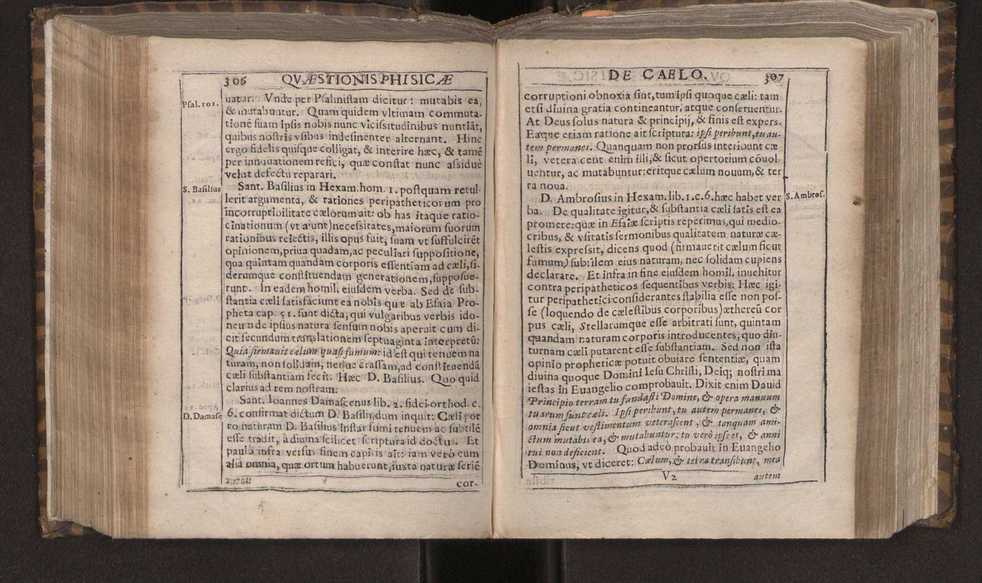 306 QVÆSTIONIS PHISICÆ
Psal. 101.
uatar. Vnde per Psalmistam dicitur: mutabis ea,
& mutabuntur. Quam quidem vltimam commuta-
tione suam ipsis nobis nunc vicissitudinibus nuntiāt,
quibus nostris vsibus indesinenter alternant. Hinc
ergo fidelis quisque colligat, & interire hæc, & tamē
per innouationem refici, quæ constat nunc assiduè
velut defectu reparari.
S. Basilius
Sant. Basilius in Hexam. hom. 1. postquam retul-
lerit argumenta, & rationes peripatheticorum pro
incorruptibilitate cælorum ait: ob has itaque ratio-
cinationum (vt aiunt) necessitates, maiorum suorum
rationibus reiectis, illis opus fuit, suam vt suffulcirēt
opinionem, priua quadam, ac peculiari suppositione,
qua quintam quandam corporis essentiam ad cæli, si-
derumque constituendam generationem, supposue-
runt. In eadem homil. eiusdem verba. Sed de sub-
stantia cæli satisfaciunt ea nobis quæ ab Esaia Pro-
pheta cap. 51. sunt dicta, qui vulgaribus verbis ido-
neum de ipsius natura sensum nobis aperuit cum di-
cit secundum translationem septuaginta interpretū:
Quia firmauit celum quasi fumum: id est qui tenuem na
turam, non solidam, neque crassam, ad constituendā
cæli substantiam fecit. Hæc D. Basilius. Quo quid
clarius ad rem nostram.
D. Damasc
Sant. Ioannes Damascenus lib. 2. fidei orthod. c.
6. confirmat dictum D. Basilij, dum inquit: Cæli por
ro naturam D. Basilius instar fumi tenuem ac subtilē
esse tradit, à diuina scilicet scriptura id doctus. Et
paulò infra versus finem capitis ait: iam verò cum
alia omnia, quæ ortum habuerunt, iuxta naturæ seriē
cor-
DE CAELO. 307
corruptioni obnoxia sint, tum ipsi quoque cæli: tam
etsi diuina gratia contineantur, atque conseruentur.
At Deus solus natura & principij, & finis est expers.
Eaque etiam ratione ait scriptura: ipsi peribunt, tu au-
tem permanes. Quanquam non prorsus interiount cæ
li, vetera cent enim illi, & sicut opertorium cōuol
uentur, ac mutabuntur: eritque cælum nouum, & ter
ra noua.
S. Ambros.
D. Ambrosius in Hexam. lib. 1. c. 6. hæc habet ver
ba. De qualitate igitur, & substantia cæli satis est ea
promere: quæ in Esaiæ scriptis reperimus, qui medio-
cribus, & vsitatis sermonibus qualitatem naturæ cæ-
lestis expressit, dicens quod (firmauerit cælum sicut
fumum) subtilem eius naturam, nec solidam cupiens
declarare. Et infra in fine eiusdem homil. inuehitur
contra peripatheticos sequentibus verbis: Hæc igi-
tur peripathetici considerantes stabilia esse non pos-
se (loquendo de cælestibus corporibus) æthereū cor
pus cæli, Stellarumque esse arbitrati sunt, quintam
quandam naturam corporis introducentes, quo diu-
turnam cæli putarent esse substantiam. Sed non ista
opinio propheticæ potuit obuiare sententiæ, quam
diuina quoque Domini Iesu Christi, Deiq; nostri ma
iestas in Euangelio comprobauit. Dixit enim Dauid
Principio terram tu fundasti Domine, & opera manuum
tuarum sunt cæli. Ipsi peribunt, tu autem permanes, &
omnia sicut vestimentum veterascent, & tanquam ami-
ctum mutabis ea, & mutabuntur: tu verò ipse es, & anni
tui non deficient. Quod adeò probauit in Euangelio
Dominus, vt diceret: Cælum, & terra transibunt, mea
V2 autem